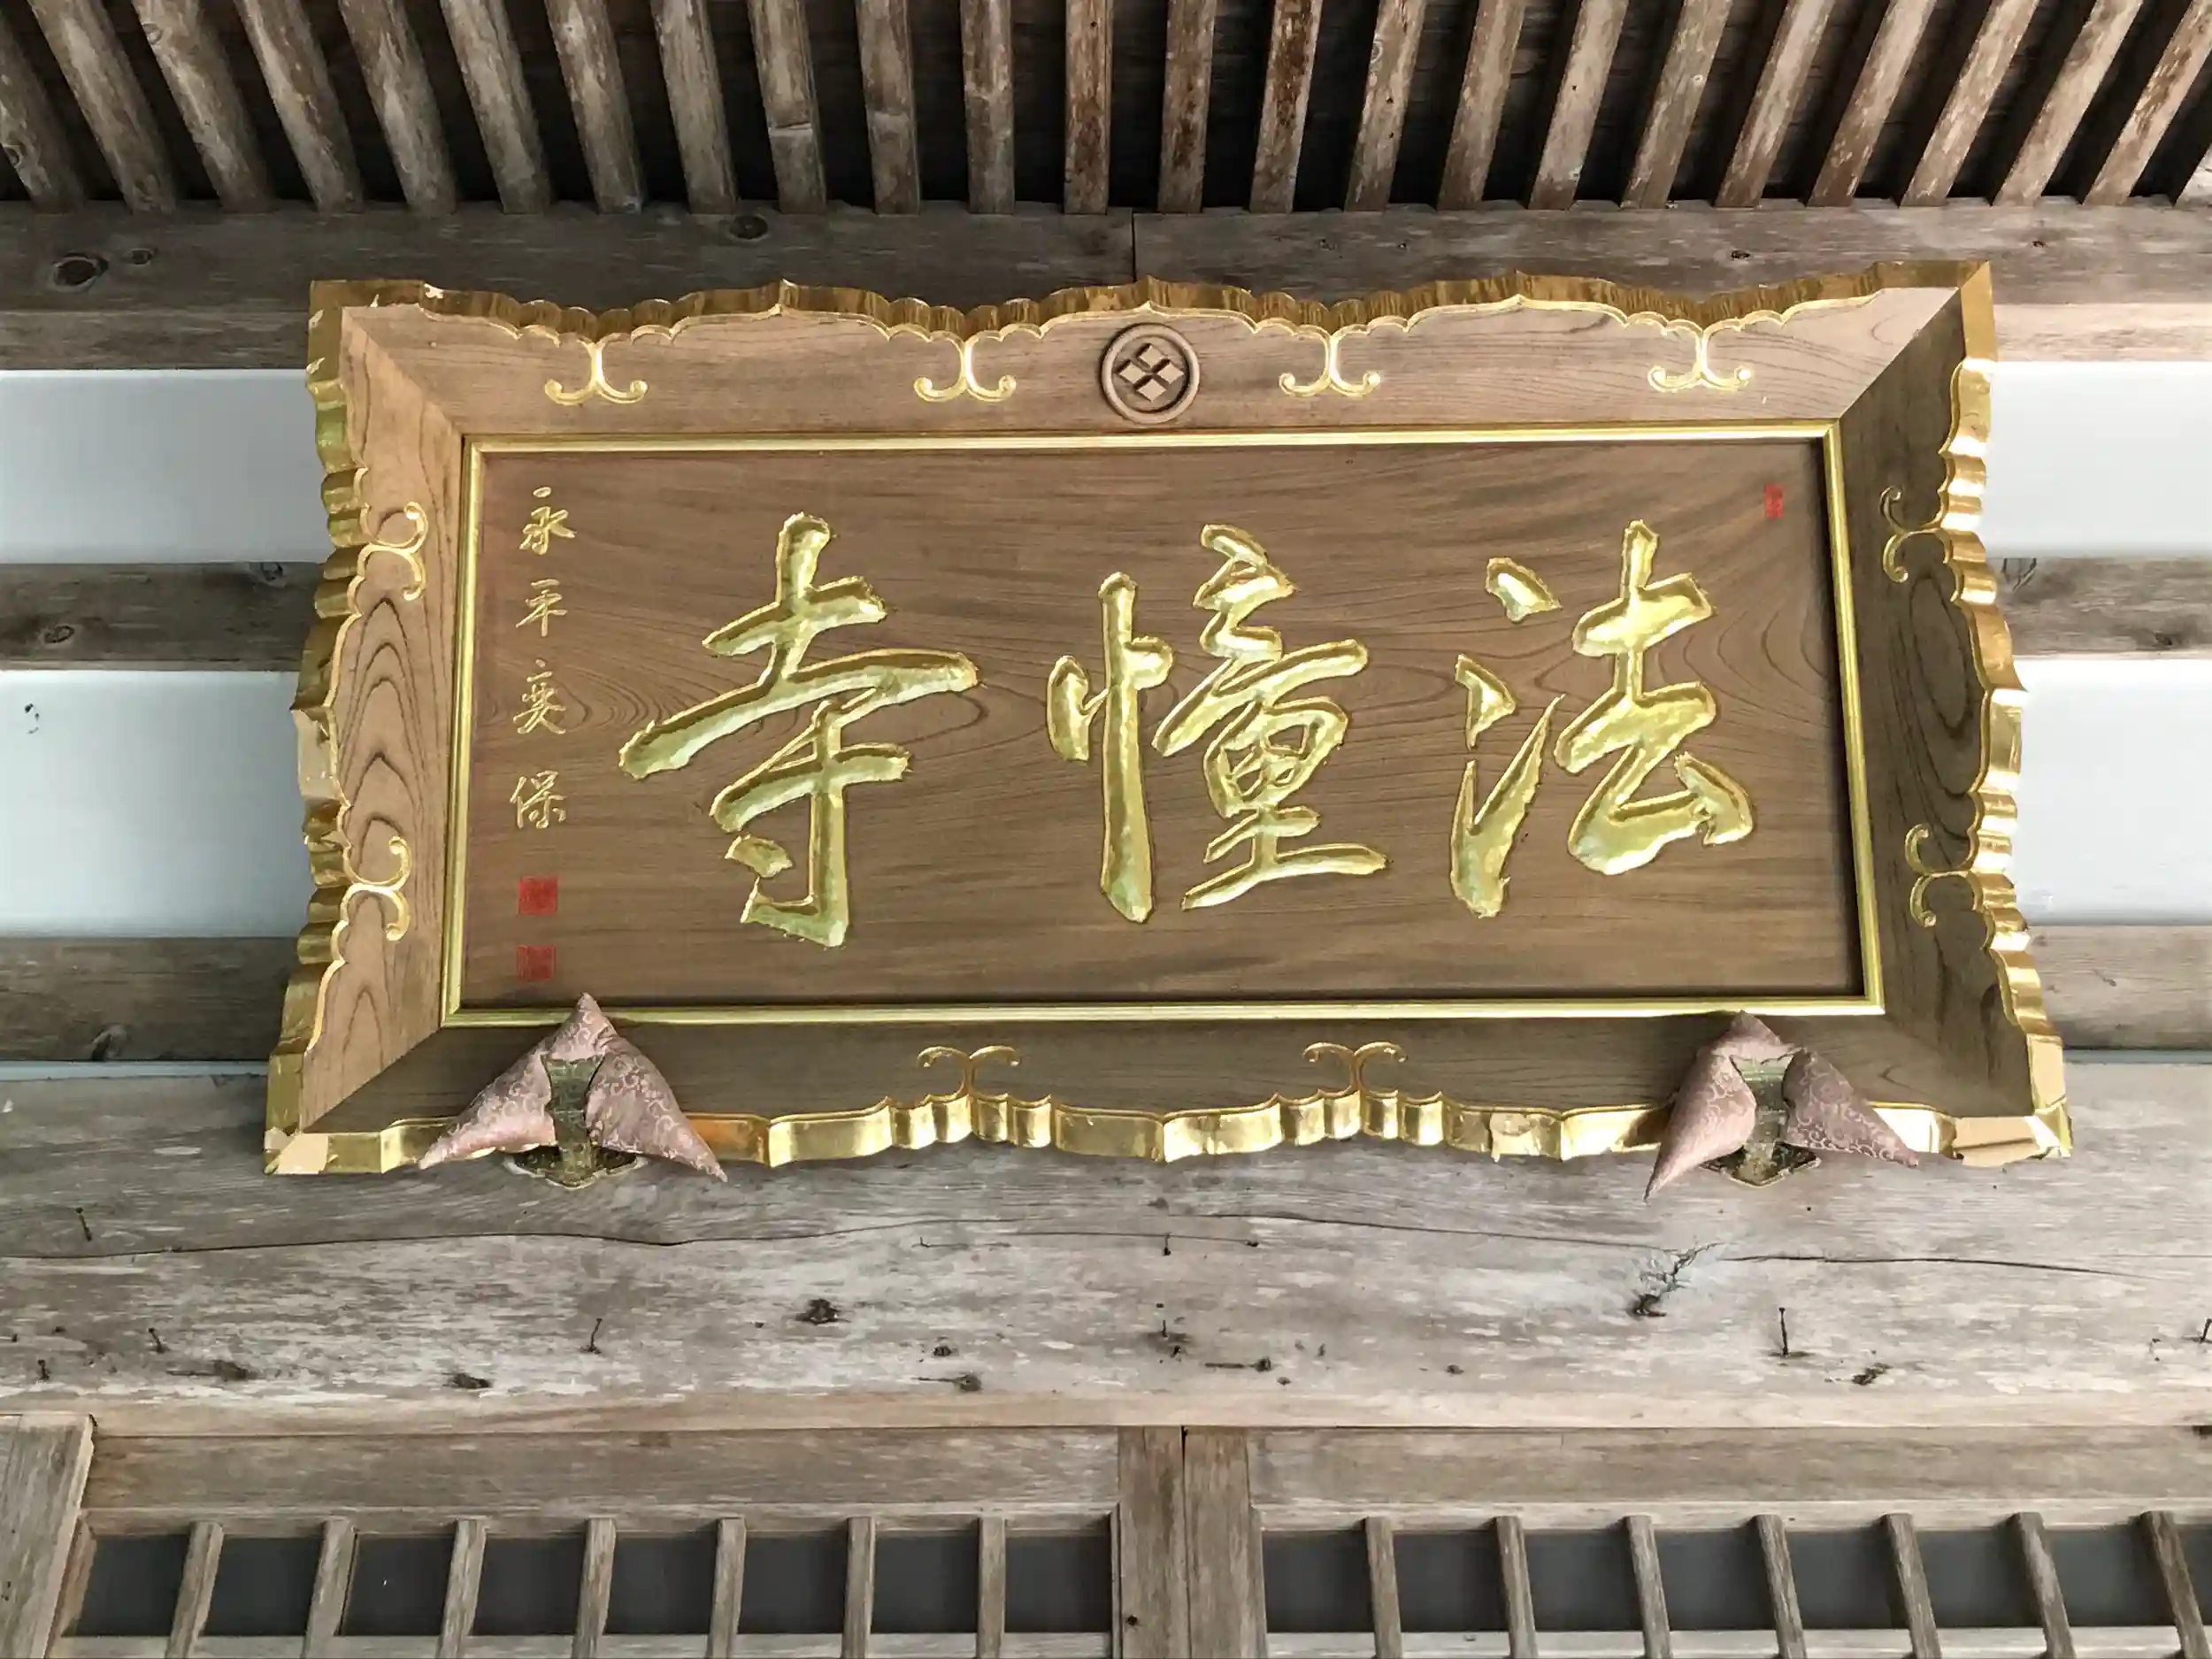 法幢寺
永平奕保